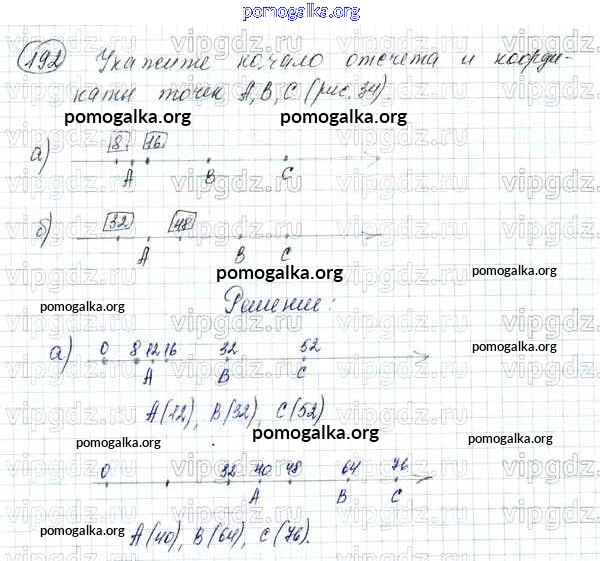 pomogalka.org
192 Укажите начало отсчета и коорди-
наты точек A, B, C (рис. 34)
pomogalka.org pomogalka.org
а) 8 16
A B C
б) 32 48
A B C
pomogalka.org
pomogalka.org pomogalka.org
Решение:
а) 0 8 12 16 32 52
A B C
pomogalka.org
A(12), B(32), C(52)
pomogalka.org pomogalka.org pomogalka.org
0 32 40 48 64 76
A B C
pomogalka.org pomogalka.org
A(40), B(64), C(76).